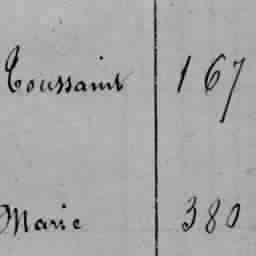 Toussaint 167
Marie 380